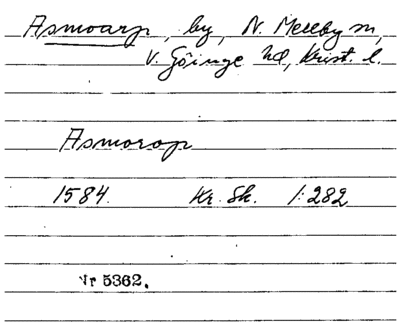 Asmoarp, by, N. Mellby sn,
V. Göinge hd, Krist. l.
Asmorop
1584. Kr. Sk. 1:282
Nr 5362.